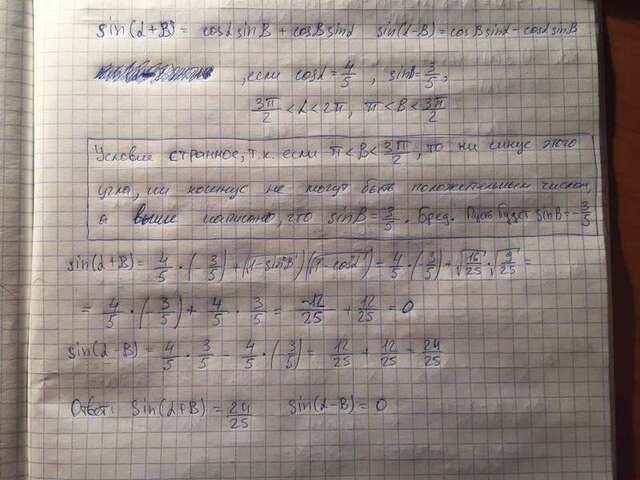 sin(α+β)= cosα sinβ + cosβ sinα sin(α-β)=cosβ sinα-cosα sinβ
, если cosα=4/5 , sinβ=3/5,
3π/2 < α < 2π, π < β < 3π/2
Условие странное, т.к. если π<β<3π/2, то ни синус этого
угла, ни косинус не могут быть положительным числом,
а выше написано, что sinβ=3/5. Бред. Пусть будет sinβ=-3/5
sin(α+β)= 4/5 · (-3/5) + √(1-sin²β) √(1-cos²α) = 4/5 · (-3/5) + √16/25 · √9/25 =
= 4/5 · (-3/5) + 4/5 · 3/5 = -12/25 + 12/25 = 0
sin(α-β)= 4/5 · 3/5 - 4/5 · (-3/5) = 12/25 + 12/25 = 24/25
Ответ: sin(α+β)= 24/25 sin(α-β)= 0